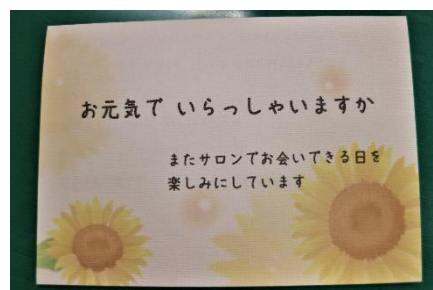 お元気で いらっしゃいますか
またサロンでお会いできる日を
楽しみにしています